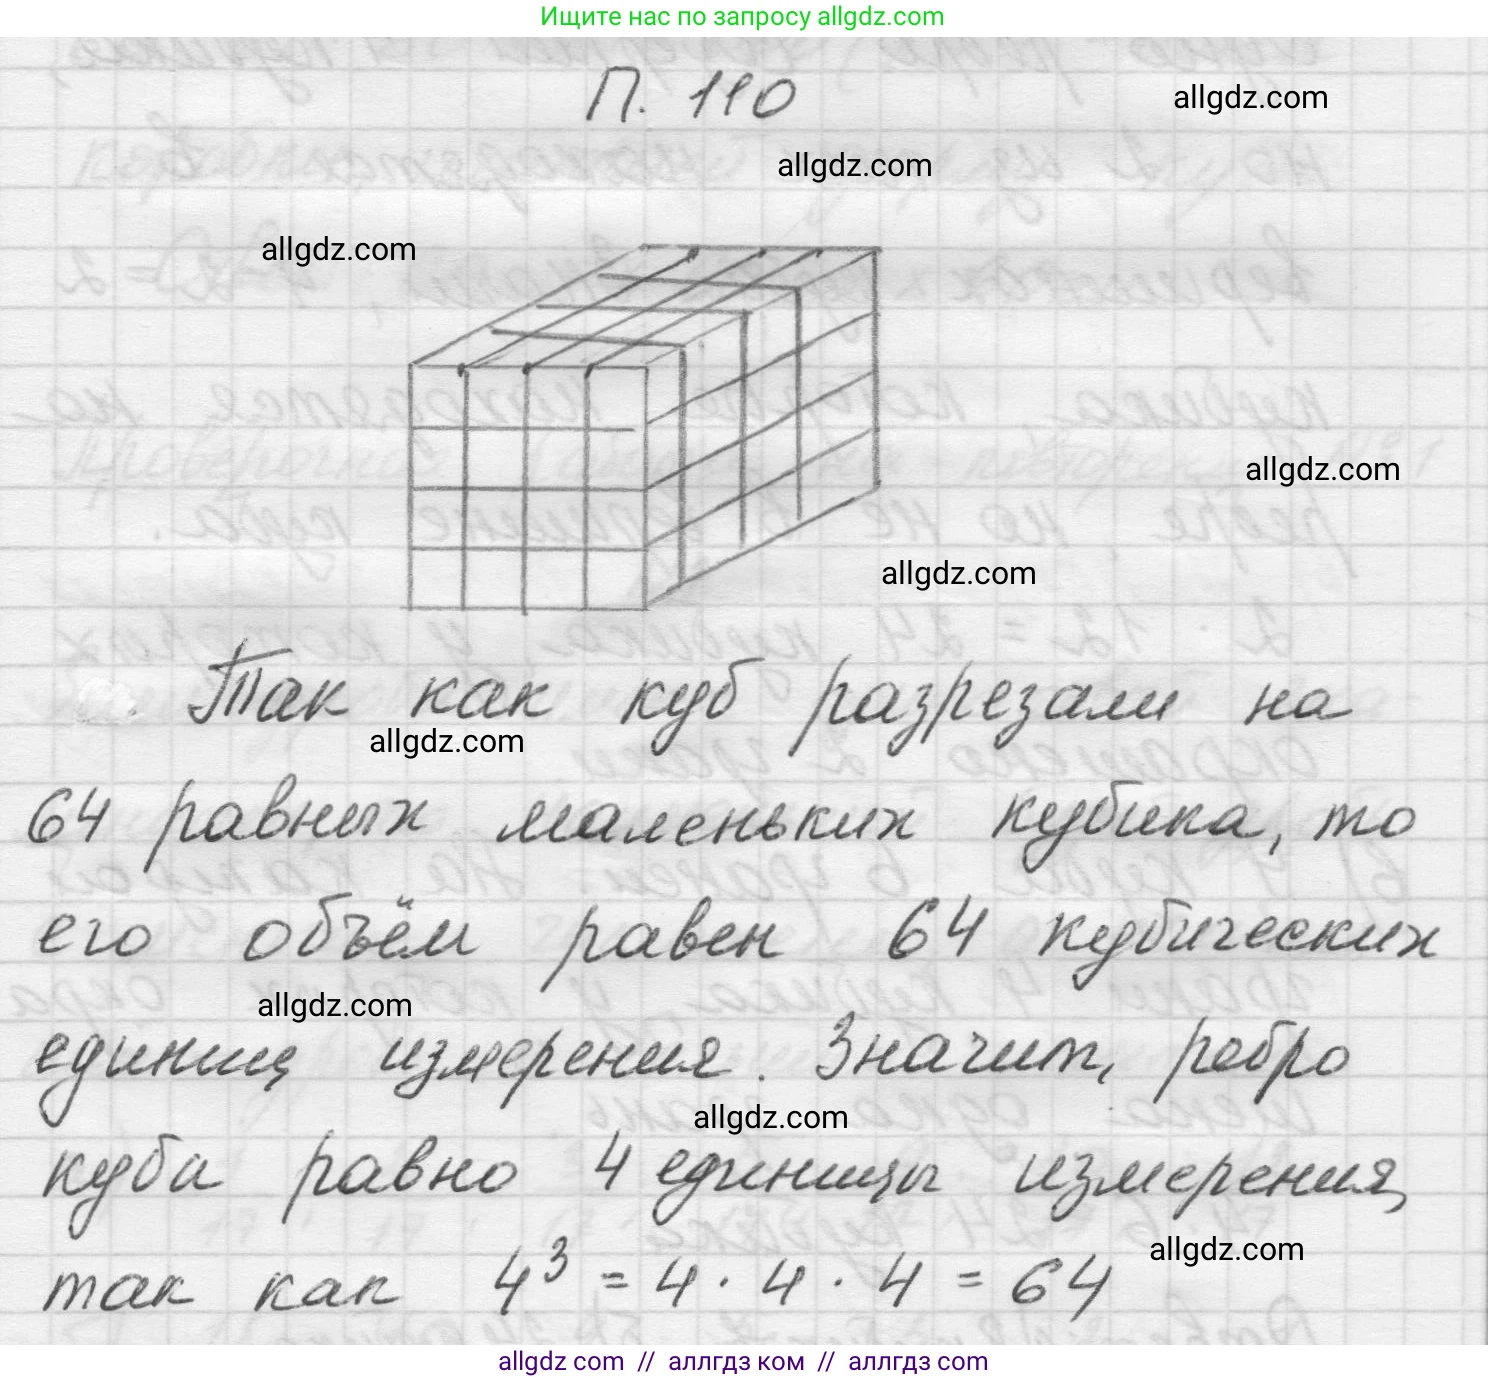 Ищите нас по запросу allgdz.com
П. 110
allgdz.com
allgdz.com
allgdz.com
allgdz.com
allgdz.com
Так как куб разрезали на
allgdz.com
64 равных маленьких кубика, то
его объём равен 64 кубических
allgdz.com
единиц измерения. Значит, ребро
allgdz.com
куба равно 4 единицы измерения,
allgdz.com
так как 4³ = 4 · 4 · 4 = 64
allgdz com // аллгдз ком // аллгдз com